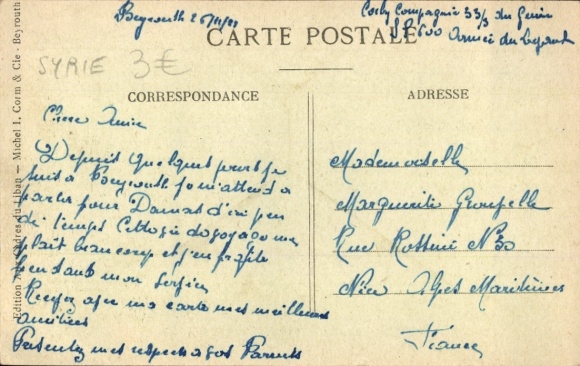 Beyrouth
Compagnie 33/3 du Génie
SP 600 Armée du Levant
CARTE POSTALE
SYRIE 3€
CORRESPONDANCE
ADRESSE
Chère Amie
Depuis quelques jours je
suis à Beyrouth
partir pour Damas d'ici peu
de temps
plait beaucoup et j'en profite
pendant mon
ma carte mes meilleures
amitiés
Présentez mes respects à vos Parents
Mademoiselle
Marguerite
Rue Rossini N°30
Nice Alpes Maritimes
France
Edition Aux Cèdres du Liban — Michel I. Corm & Cie - Beyrouth